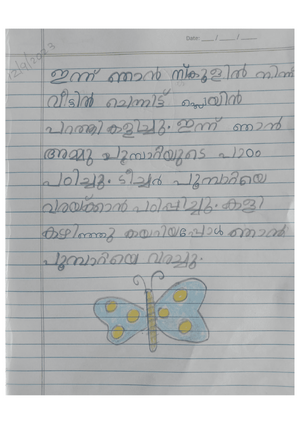 Date: __/__/__
12/9/2023
ഇന്ന് ഞാൻ സ്കൂളിൽ നിന്ന്
വീട്ടിൽ ചെന്നിട്ട് പ്ലെയിൻ
പറത്തി കളിച്ചു. ഇന്ന് ഞാൻ
അമ്മു പൂമ്പാറ്റയുടെ പാഠം
പഠിച്ചു. ടീച്ചർ പൂമ്പാറ്റയെ
വരയ്ക്കാൻ പഠിപ്പിച്ചു. കളി
കഴിഞ്ഞു കയറിയപ്പോൾ ഞാൻ
പൂമ്പാറ്റയെ വരച്ചു.